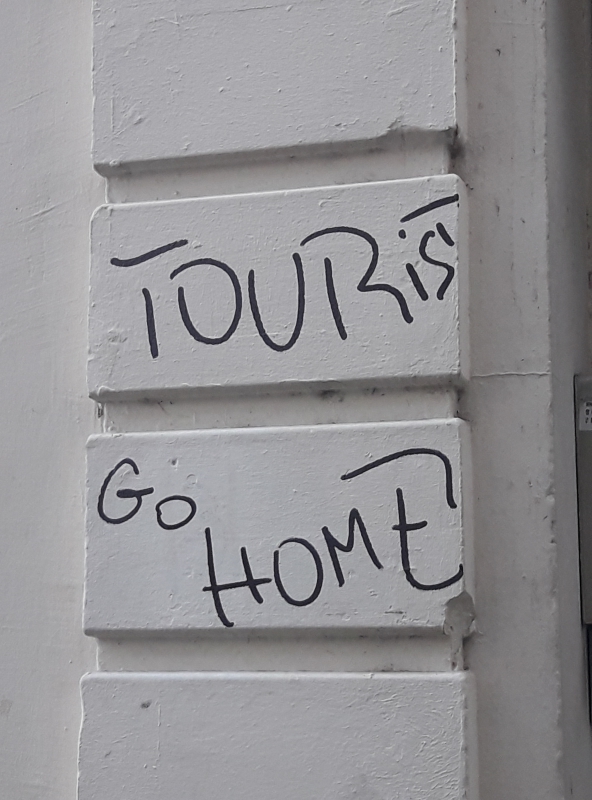 TOURiST
Go
HOME